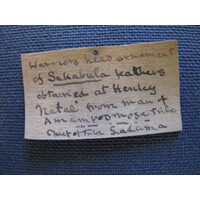 Warriors head ornament
of Sakabula feathers
obtained at Henley
Natal from man of
Amampomose tribe
Chief of tribe